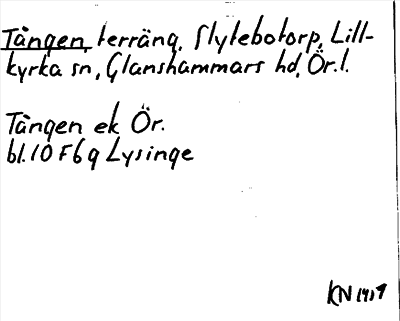 Tången, terräng, Slytebotorp, Lill-
kyrka sn, Glanshammars hd, Ör. l.
Tången ek Ör.
bl. 10 F 6 g Lysinge
KN